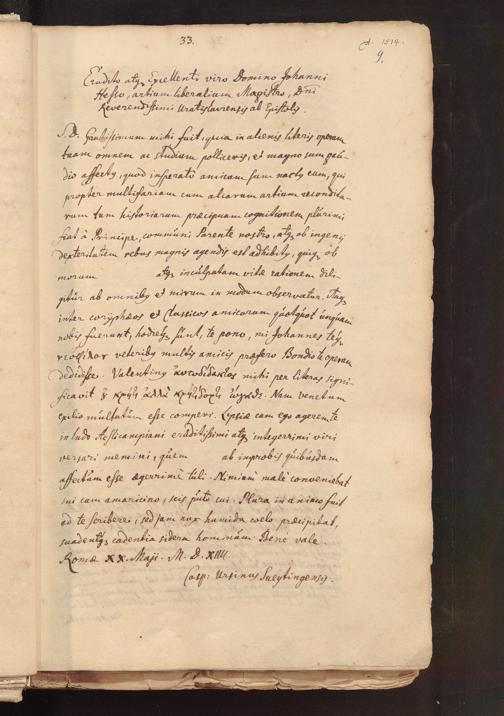 33.
A. 1514.
9.
Erudito atq Excellenti viro Domino Johanni
Hesso, artium liberalium Magistro, Dni
Reverendissimi Uratislaviensis ab Epistolis.
S. D. Gratissimum mihi fuit, quia in alienis literis operam
tuam omnem ac studium polliceris, et magno sum gau-
dio affectus, quod insperato amicum sum nactus eum, qui
propter multifariam cum aliarum artium recondita-
rum tum historiarum præcipuam cognitionem plurimi
fiat à Principe, communi Parente nostro, atq ob ingenij
dexteritatem rebus magnis agendis est adhibitus, quiq ob
morum atq inculpatam vitæ rationem dili-
gitur ab omnibus et mirum in modum observatur. Itaq
inter coryphæos et Classicos amicorum quotquot unquam
nobis fuerunt, hodieq sunt, te pono, mi Johannes, teq
veteribus multis amicis præfero
dedidisse. Valentinus αυτοδίδακτος mihi per literas signi-
ficavit Nam Venetum
exilio multatum esse comperi. Lipsiæ cum ego agerem te
in ludo Aesticampiani eruditissimi atq integerrimi viri
versari memini, quem ab improbis quibusdam
affectum esse ægerrime tuli. Nimium male conveniebat
sui cum amaricino, scis puto cui. Plura in animo fuit
ad te scribere, sed jam nox humida coelo præcipitat,
suadentq cadentia sidera somnum. Bene vale.
Romæ XX. Maji. M. D. XIIII.
Casp: Ursinus Sueytingensis.